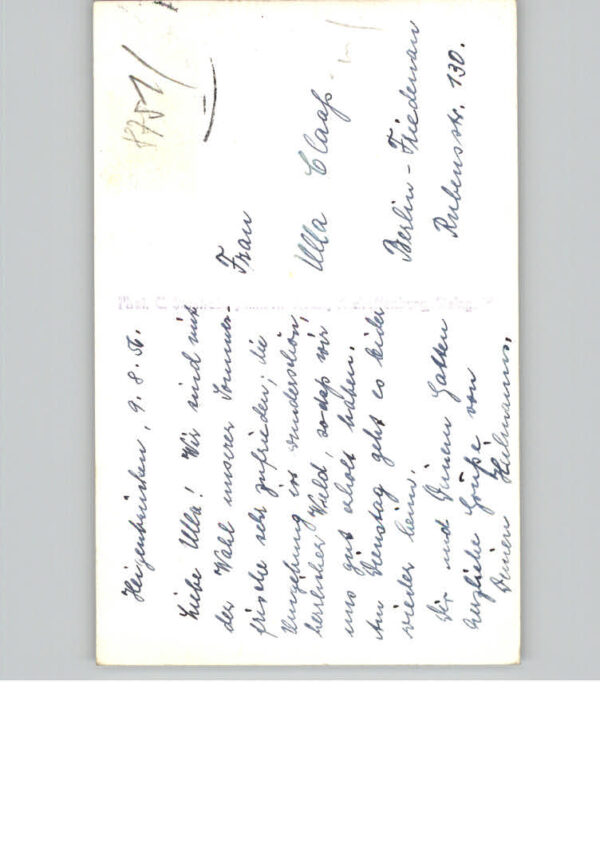 Heigenbrücken, 9. 8. 56.
Liebe Ulla! Wir sind mit
der Wahl unserer Sommer-
frische sehr zufrieden, die
Umgebung ist wunderschön,
herrlicher Wald, sodaß wir
uns gut erholt haben.
Am Dienstag geht es leider
wieder heim.
Dir und Deinem Gatten
herzliche Grüße von
Deinen Heilmanns.
8751/
Frau
Ulla Claaß
Berlin-Friedenau
Rubensstr. 130.